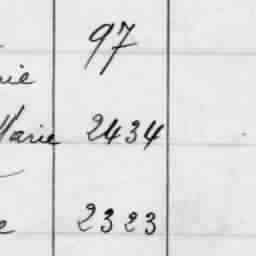 97
Marie 2434
2323